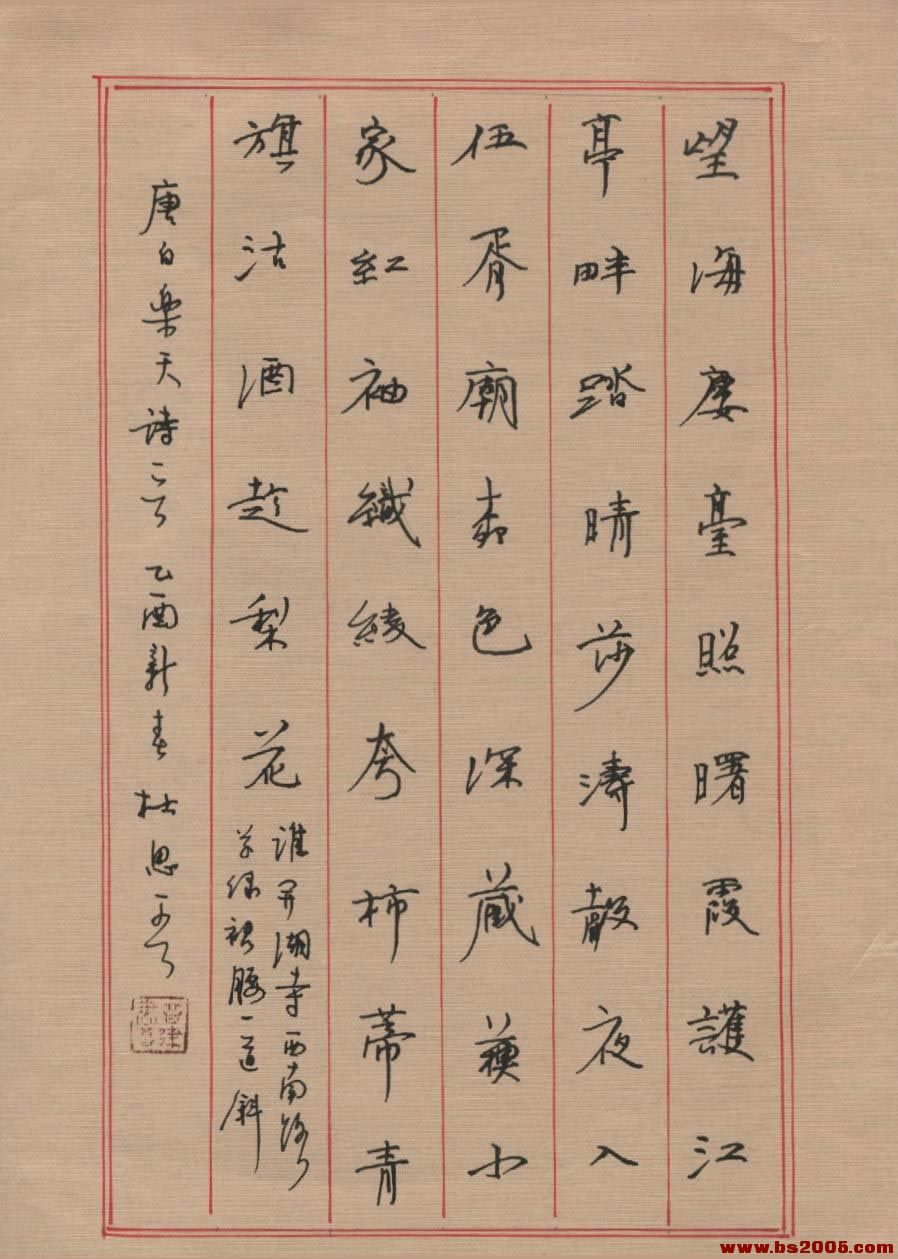 望海廔臺照曙霞護江
亭畔踏晴莎濤聲夜入
伍胥廟柳色深藏蘇小
家紅袖織綾夸柿蒂青
旗沽酒趁梨花
誰开湖寺西南路
草绿裙腰一道斜
唐白楽天詩一首 乙酉新春 杜思
www.bs2005.com